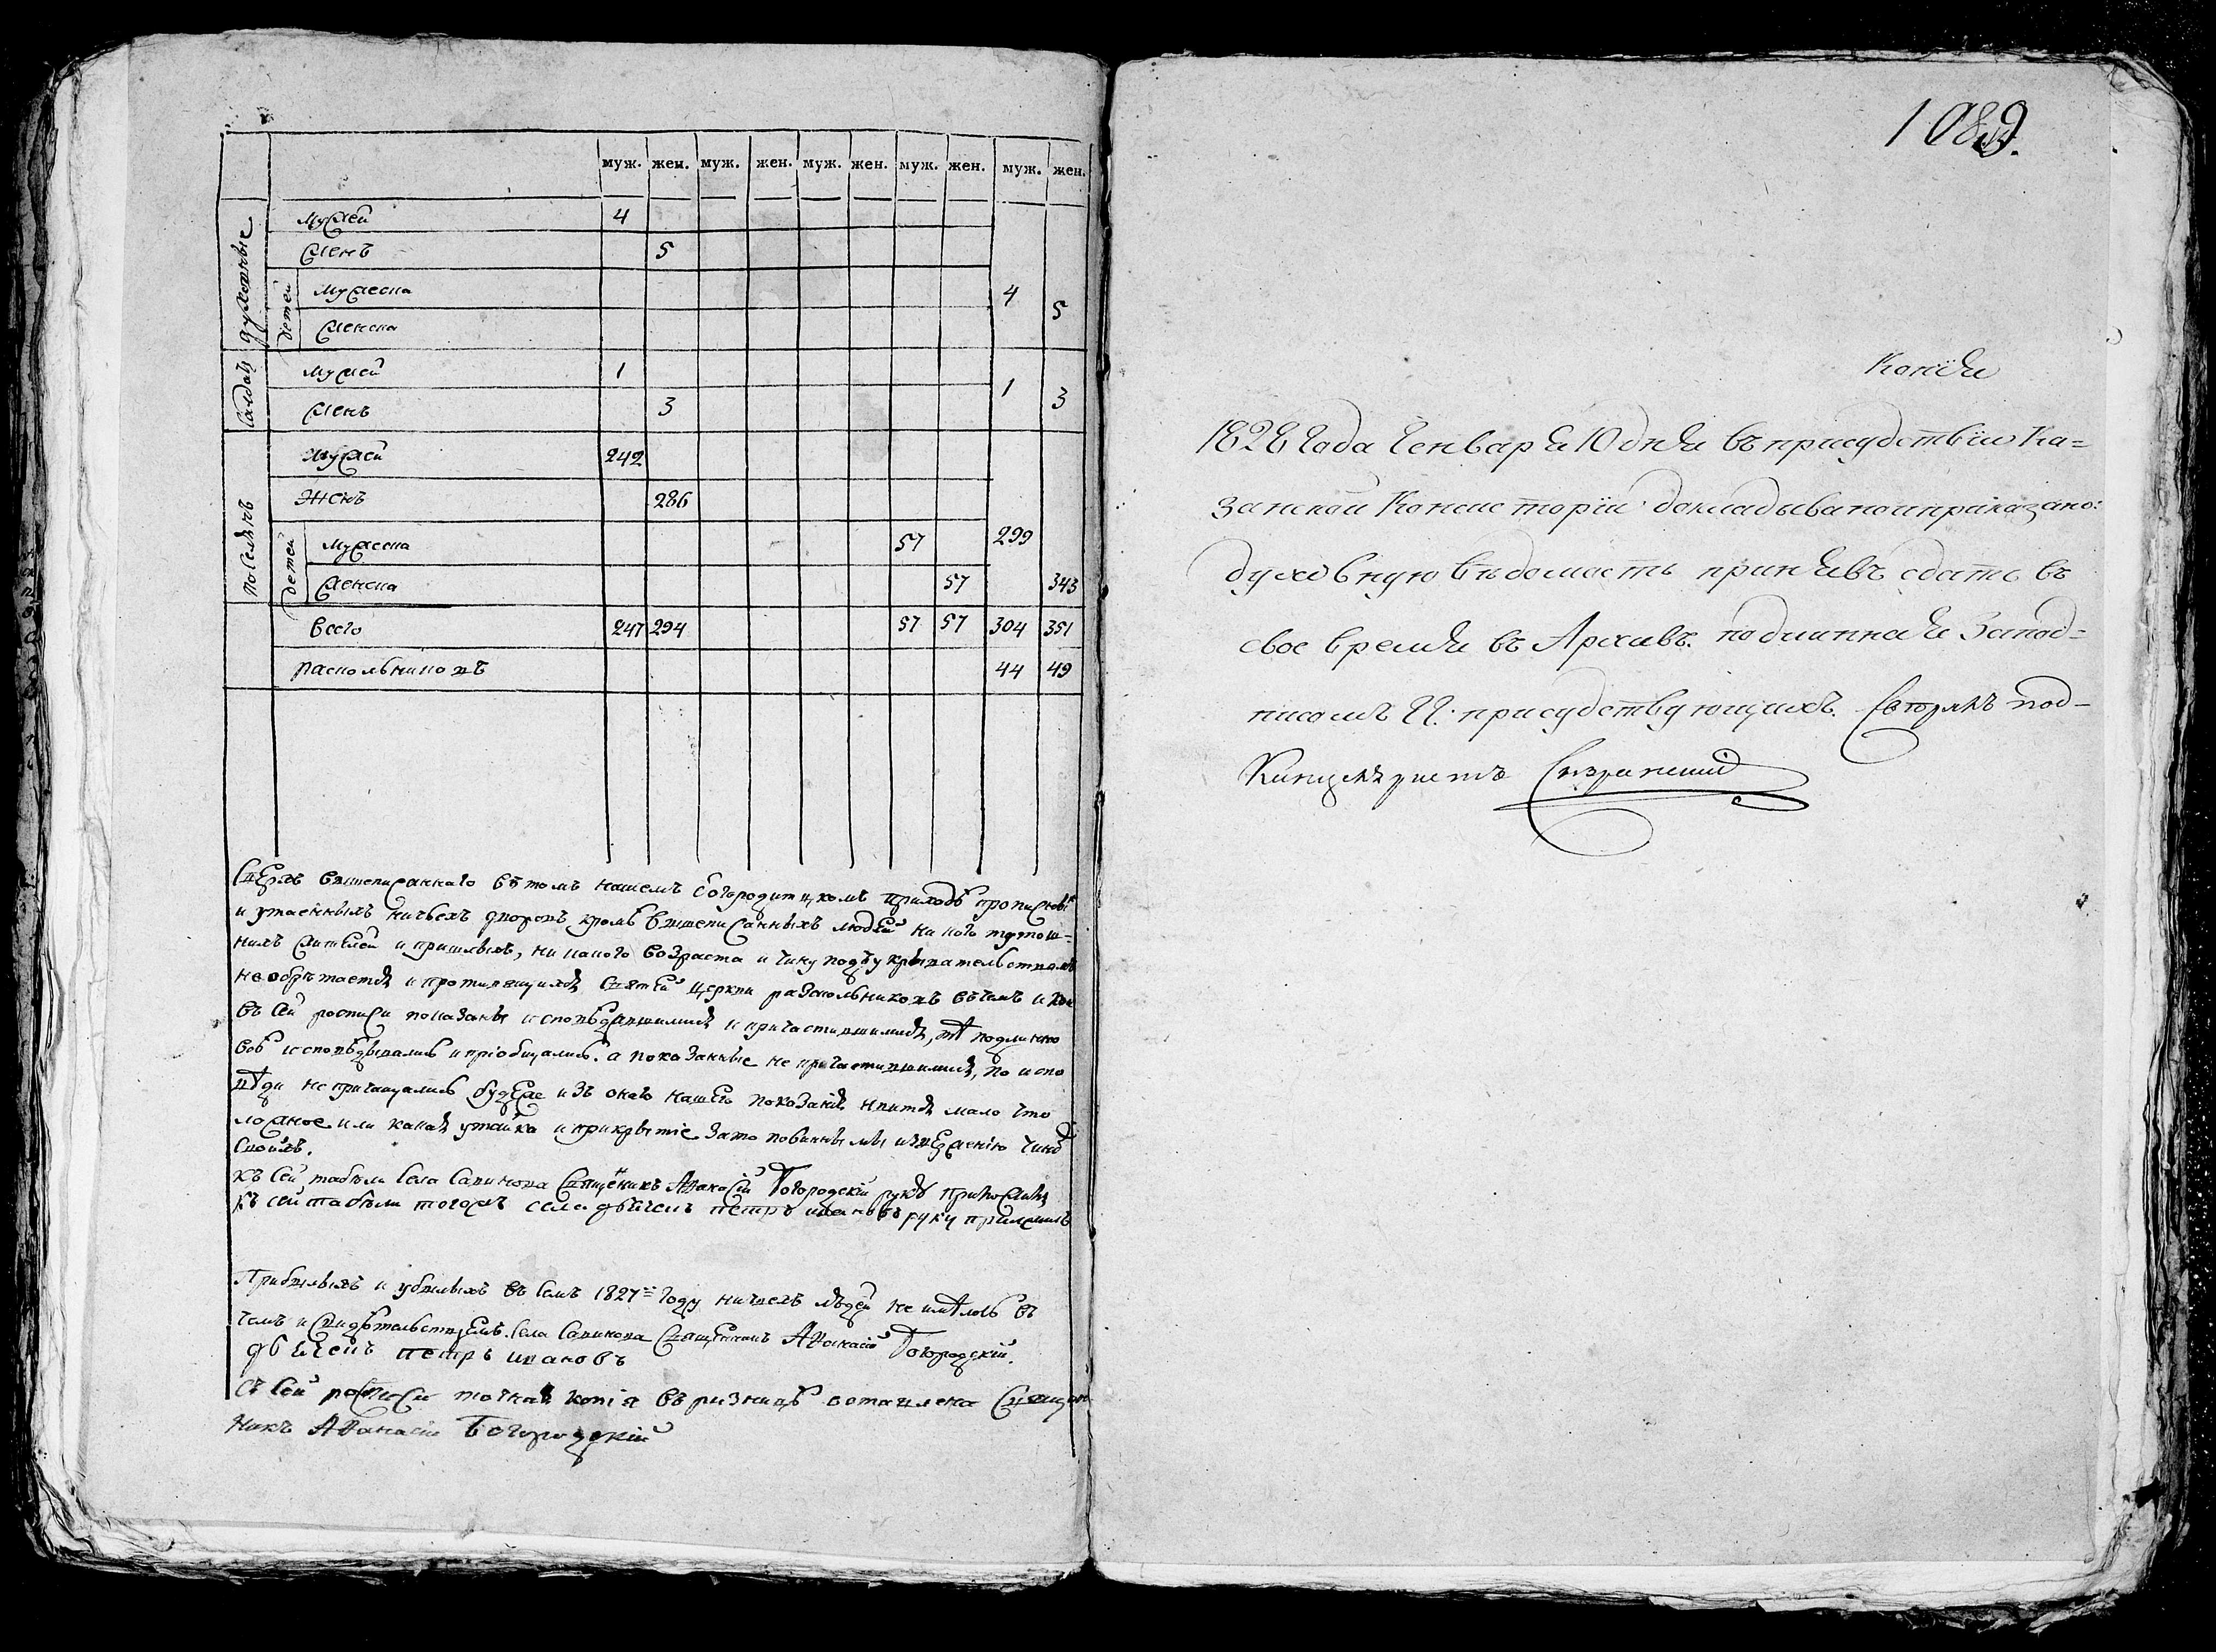 муж. жен. муж. жен. муж. жен. муж. жен. муж. жен.
духовные
мужей 4
женъ 5
детей
мужеска 4
женска 5
Салдатъ
мужей 1 1
женъ 3 3
поселянъ
мужей 242
женъ 286
детей
мужеска 57 299
женска 57 343
всего 247 294 57 57 304 351
раскольниковъ 44 49
Сверхъ вышеписаннаго въ томъ нашемъ Богородитцкомъ приходѣ прописныхъ
и утаенныхъ ничьехъ дворовъ кромѣ вышеписанныхъ людей никого тутош=
нихъ жителей и пришлыхъ, никакого возраста и чину подъ укрывательствомъ
необрѣтается и противящихся святей церкви раскольниковъ въ чемъ и кои
въ сей росписи показаны исповѣдавшимися и причастившимися, тѣ подлинно
всѣ исповѣдывались и пріобщались. а показанные не причастившимися, по испо
вѣди не причащались буде же изъ онаго нашего показанія явится мало что
ложное или какая утайка и прикрытіе зато повинны мы извержению чиновъ
своихъ.
къ сей табели села Савинова священникъ Аѳанасій Богородскій руку приложилъ
къ сей табели тогожъ села дьячекъ петръ ивановъ руку приложилъ
Прибылыхъ и убылыхъ въ семъ 1827 году ничьехъ людей не имѣлось въ
чемъ и свидѣтельствуемъ. села Савинова священникъ Аѳанасій Богородскій.
дьячекъ петръ ивановъ
Съ сей росписи точная копія въ ризницѣ оставлена Священ
никъ Аѳанасій Богородскій
108
Копія
1828 года Генваря 10 дня въ присудствіи Ка=
занской Консисторіи докладывано и приказано:
духовную вѣдомость принявъ сдать въ
свое время въ Архивъ. подлинная за под=
писомъ ГГ. присудствующихъ. Свѣрялъ под-
Канцеляристъ